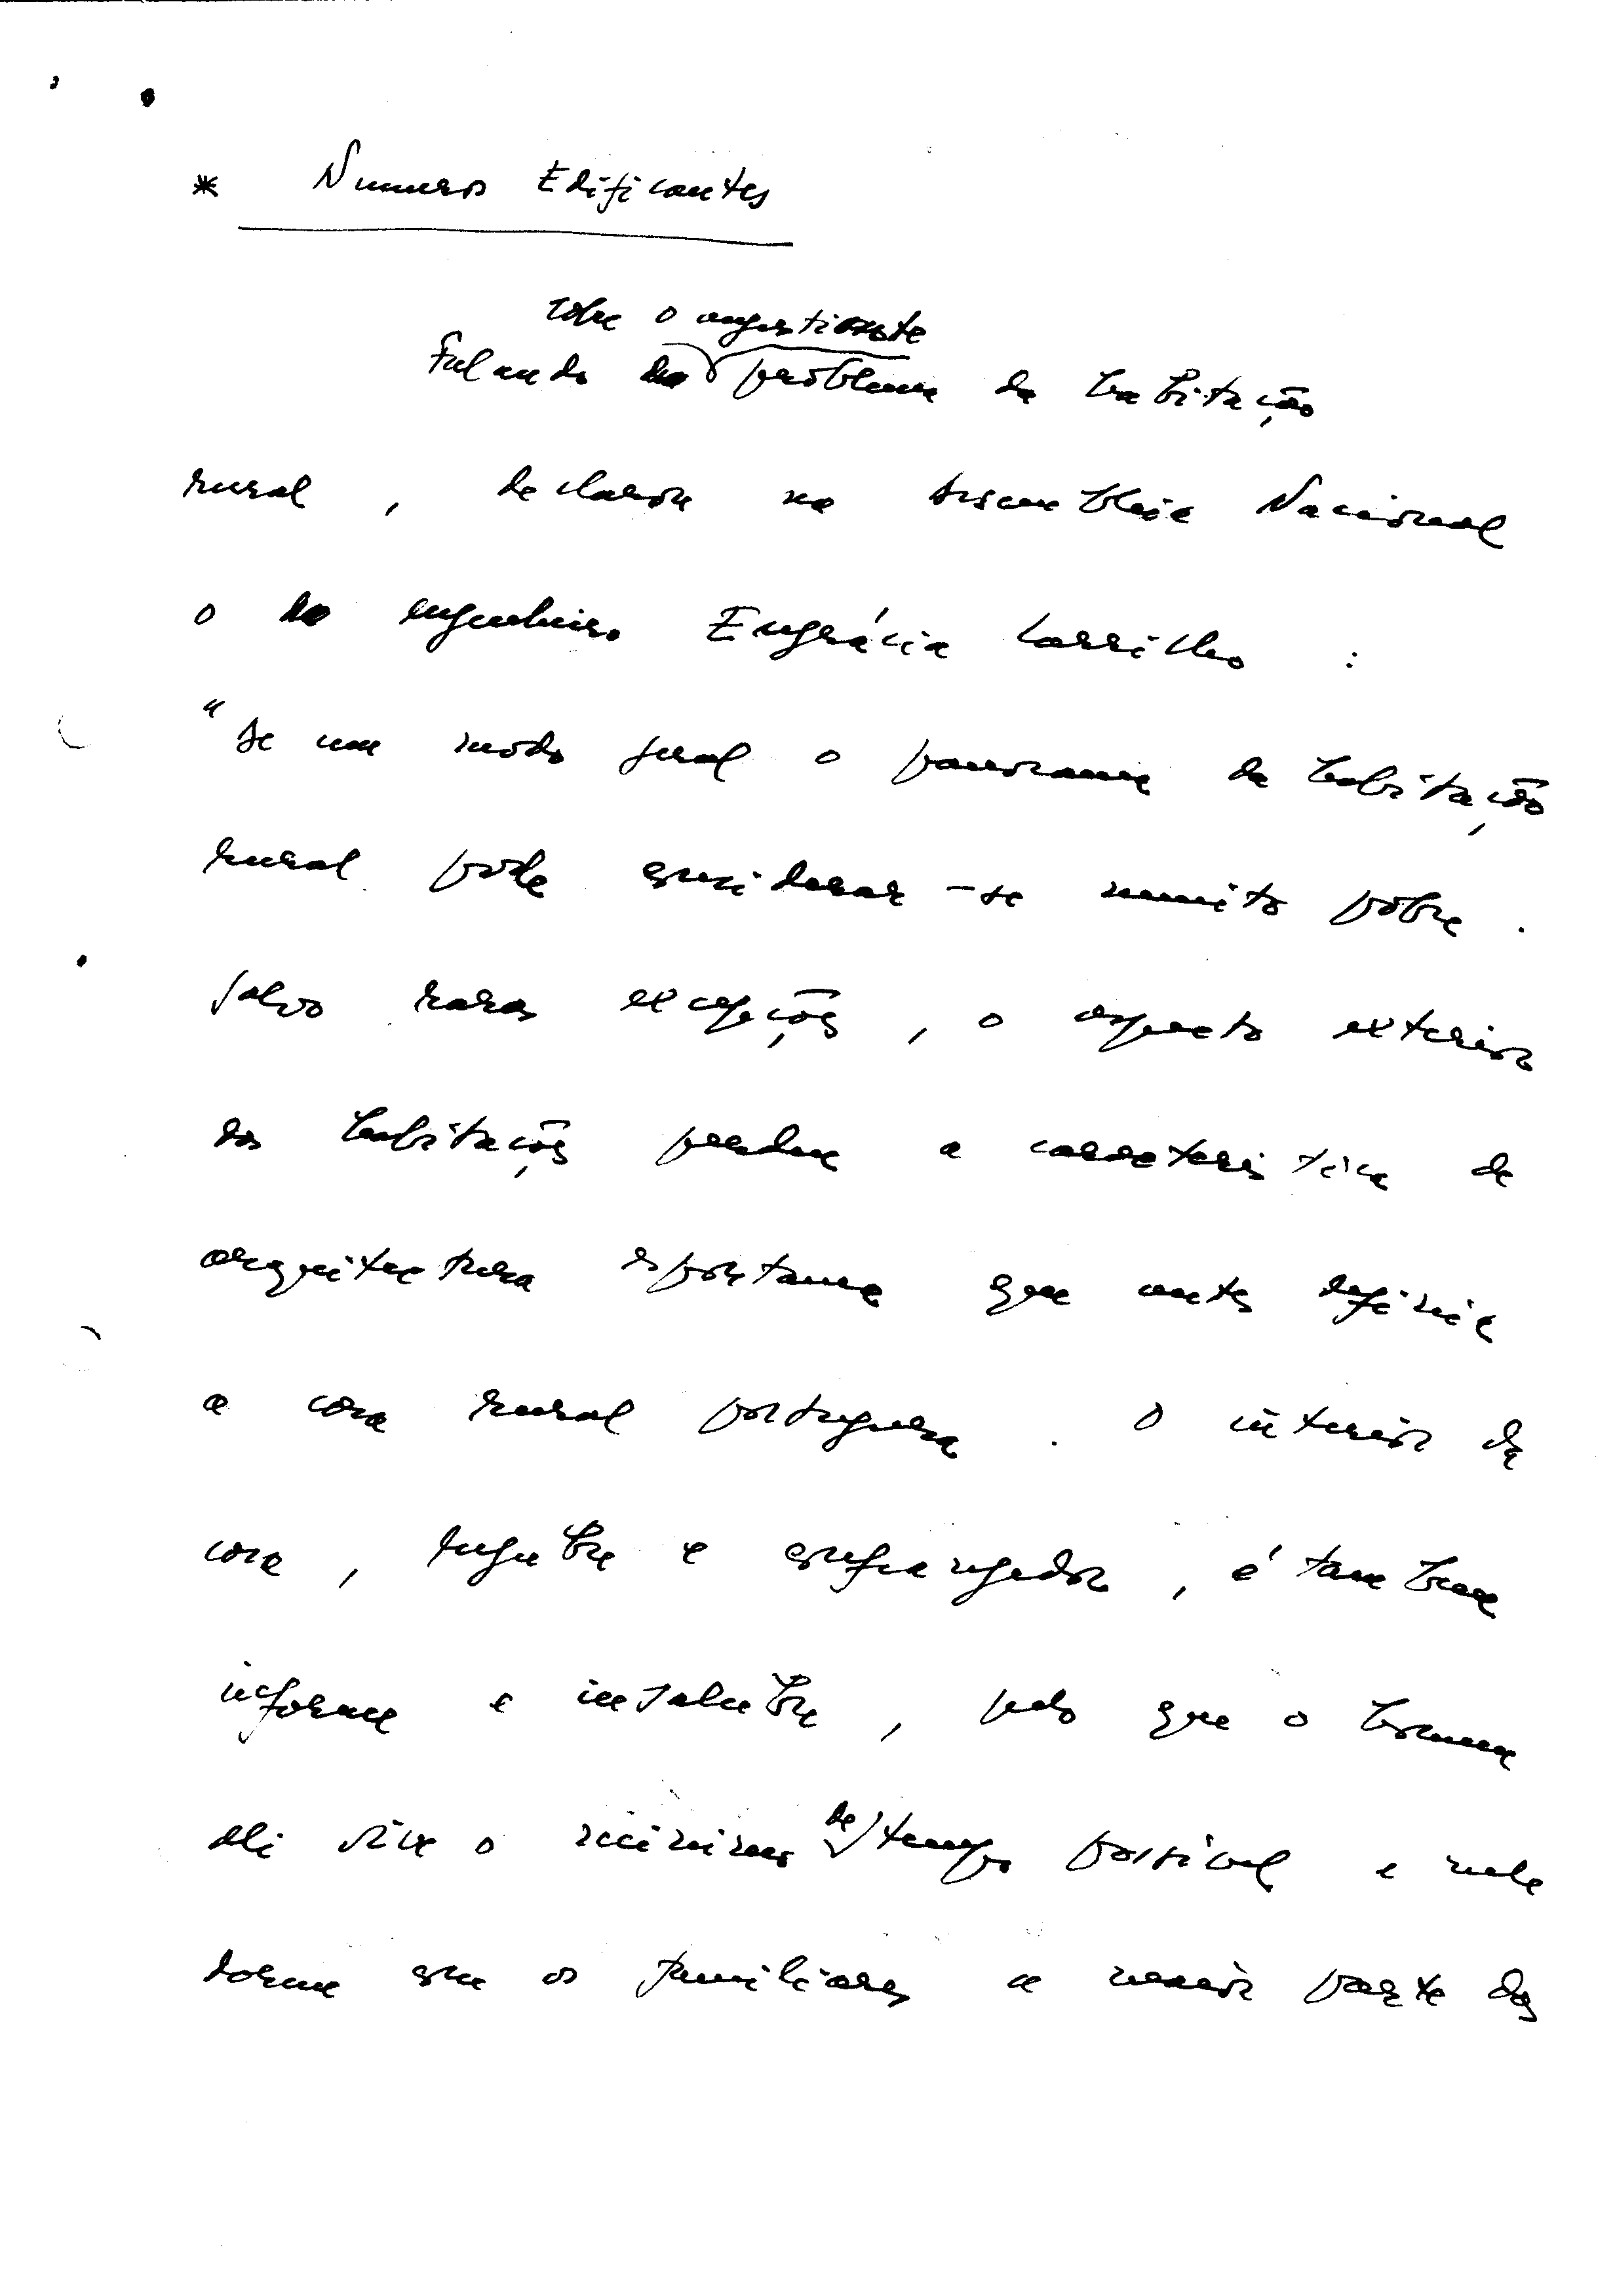 * Numeros Edificantes
sobre o angustiante
Falando do problema da habitação
rural, declarou na Assembleia Nacional
o engenheiro Engrácia Carrilho :
"De um modo geral o panorama da habitação
rural pode considerar-se muito pobre.
Salvo raras excepções, o aspecto exterior
das habitações perdeu a caracteristica de
arquitectura espontanea que antes definia
a casa rural portuguesa. O interior da
casa, lugubre e confrangedor, é tambem
informe e insalubre, pelo que o homem
ali vive o minimo de tempo possivel e nele
dorme com os familiares a maior parte das